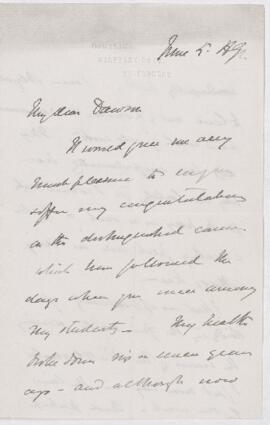 June 5. 
My dear Dawson
It would give me very
much pleasure to
offer my congratulations
on the distinguished career
which has followed the
days when you were among
my students — My health
broke down six or seven years
ago — and although now